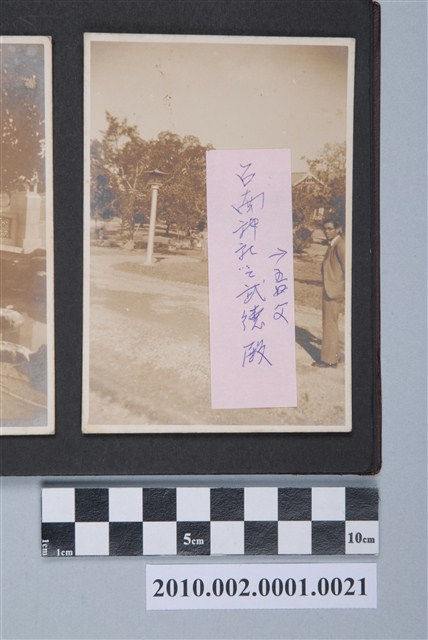 台南神社之武德殿
→吾父
1cm
1cm
5cm
10cm
2010.002.0001.0021